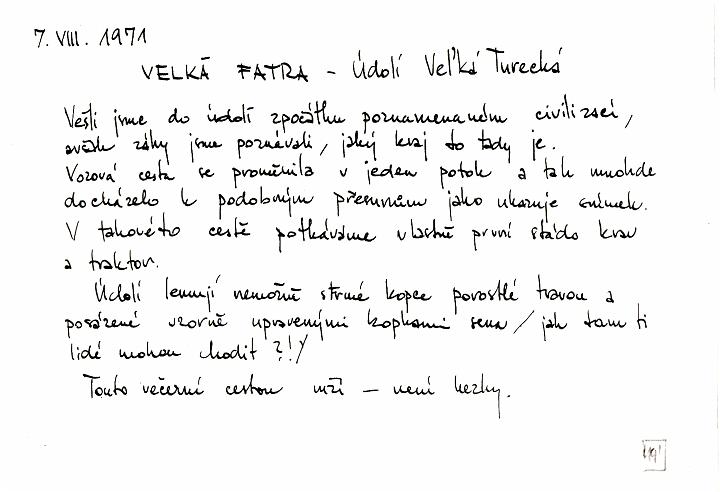 7. VIII. 1971
VELKÁ FATRA – Údolí Veľká Turecká
Vešli jsme do údolí zpočátku poznamenaném civilizací,
avšak záhy jsme poznávali, jaký kraj to tady je.
Vozová cesta se proměnila v jeden potok a tak mnohde
docházelo k podobným přesunům jako ukazuje snímek.
V takovéto cestě potkáváme vlastně první stádo krav
a traktor.
Údolí lemují nemožně strmé kopce porostlé travou a
posázené vzorně upravenými kopkami sena /jak tam ti
lidé mohou chodit ?!/
Touto večerní cestou mží – není hezky.